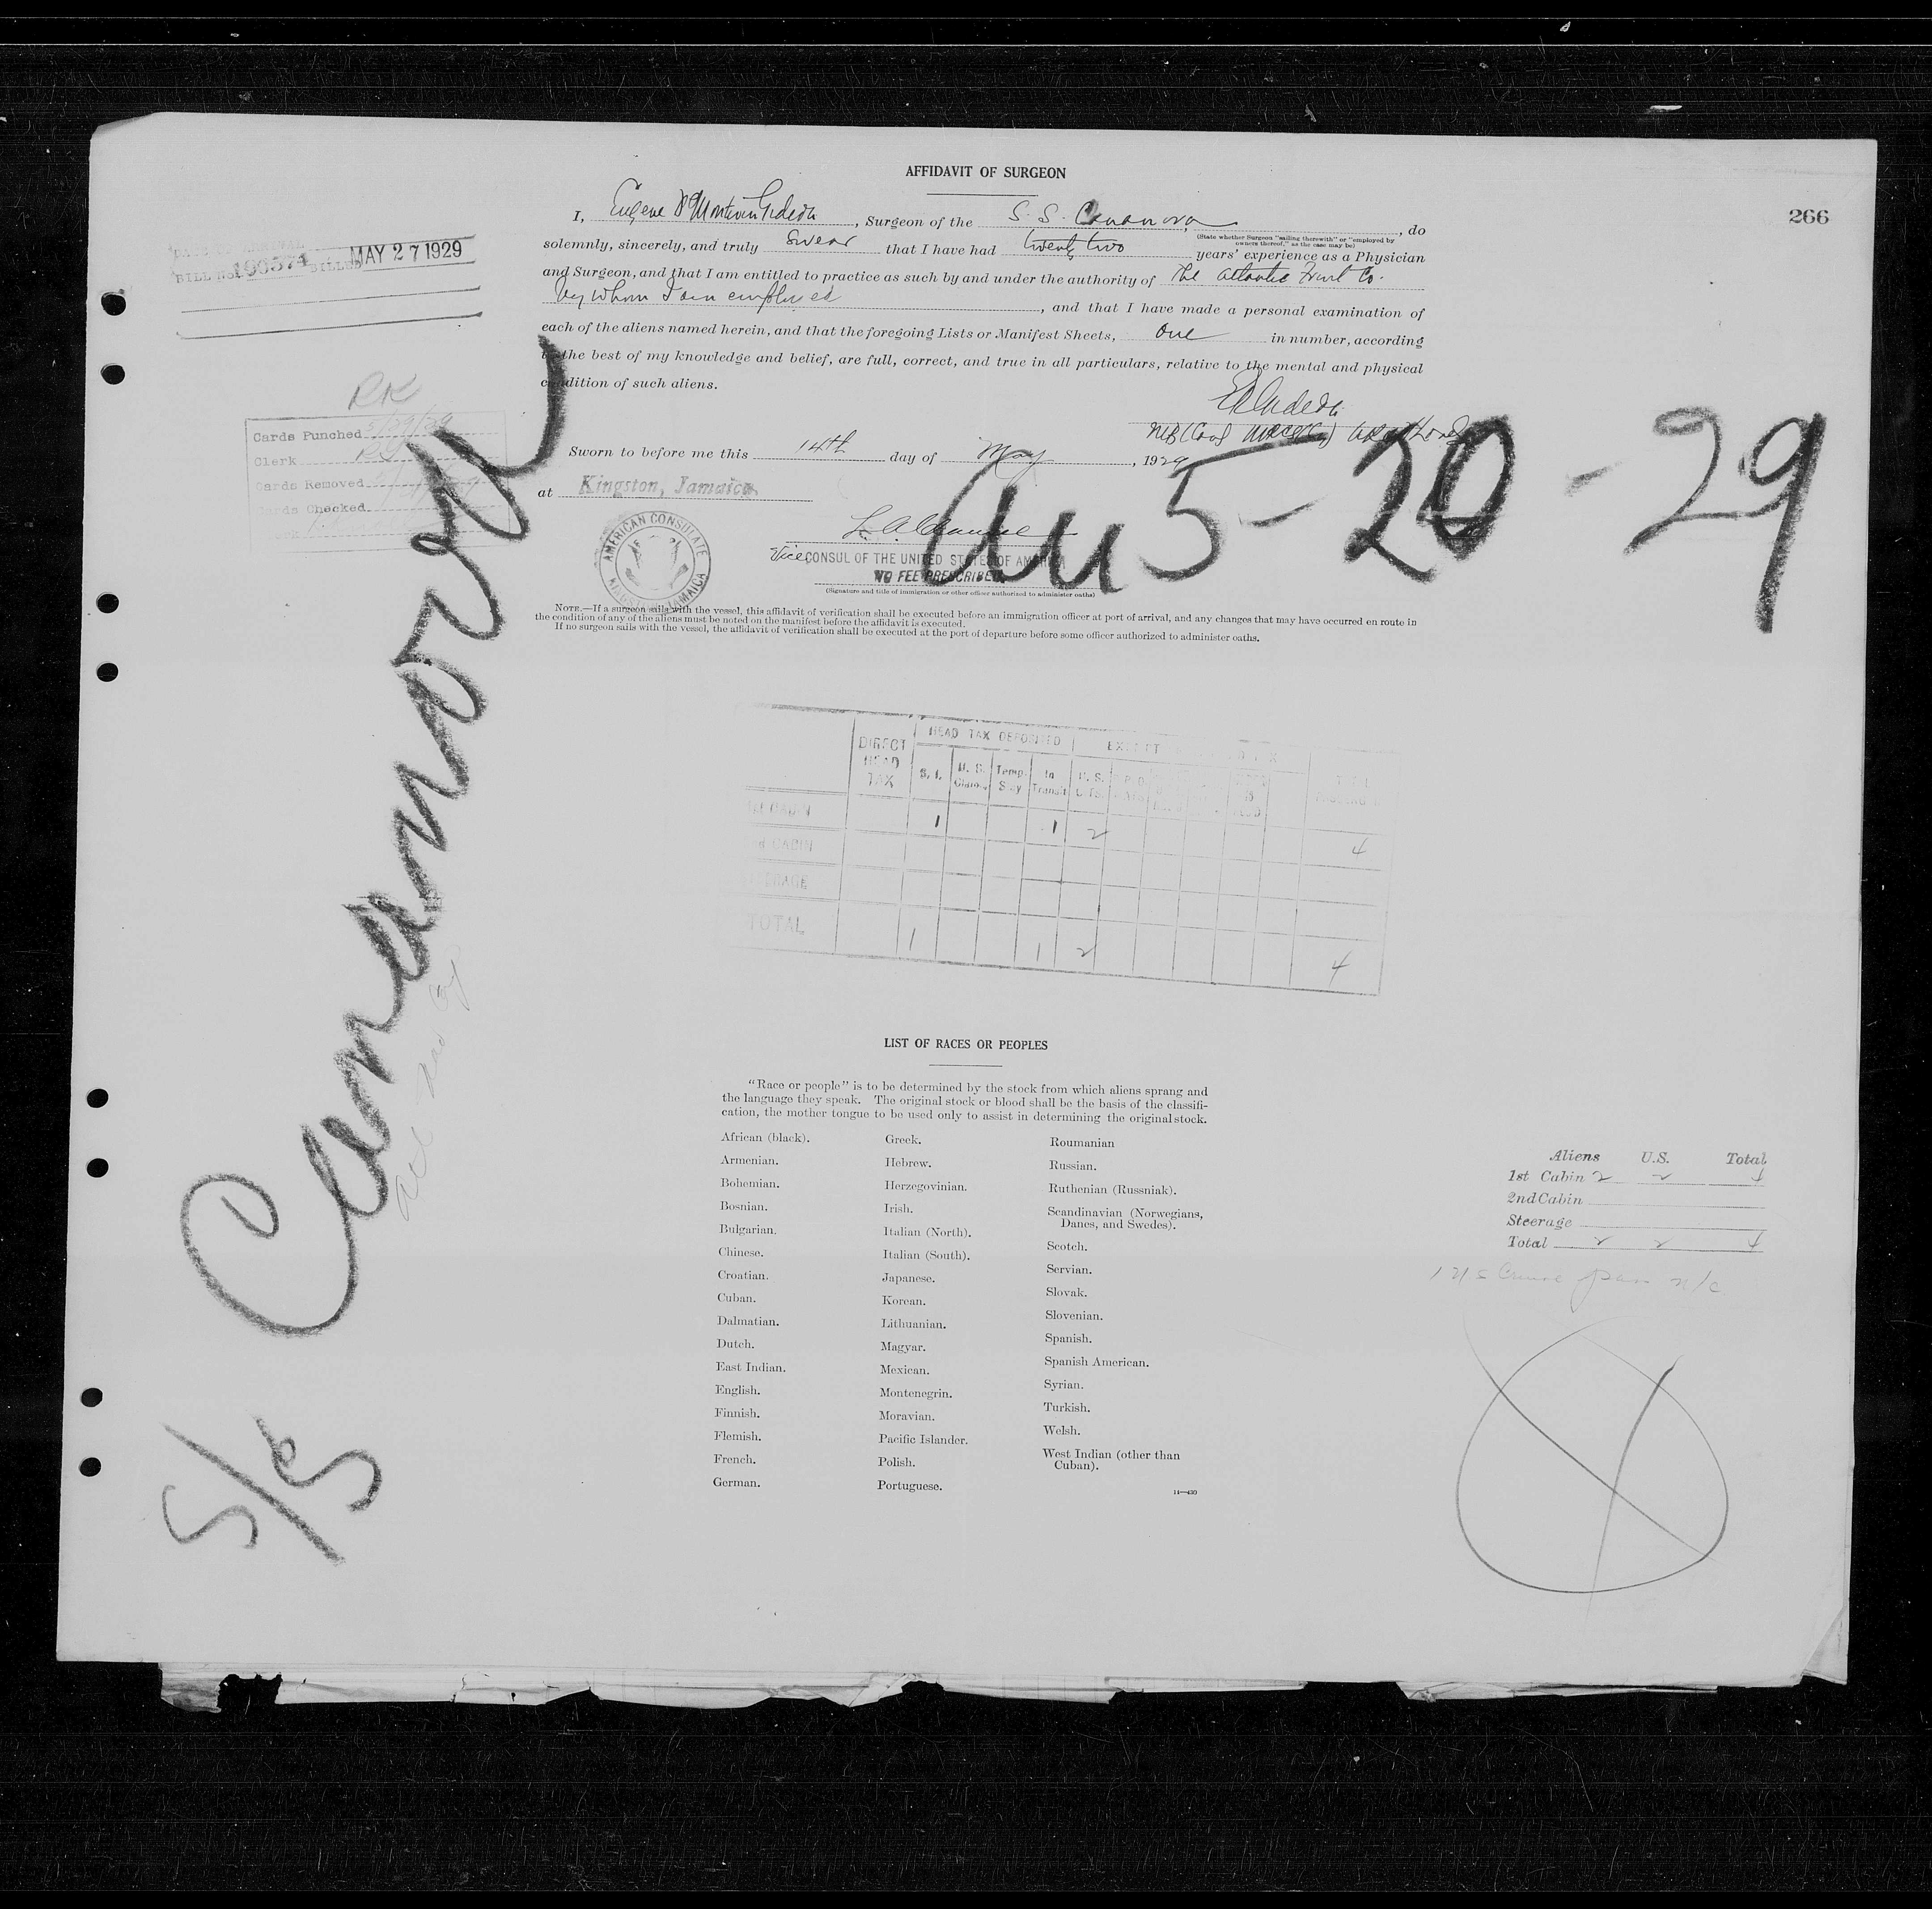 AFFIDAVIT OF SURGEON
266
I, Eugene Gideon, Surgeon of the S. S. Canamora, do
(State whether Surgeon "sailing therewith" or "employed by owners thereof," as the case may be)
solemnly, sincerely, and truly swear that I have had twenty two years' experience as a Physician
and Surgeon, and that I am entitled to practice as such by and under the authority of The Atlantic Fruit Co.
by whom I am employed, and that I have made a personal examination of
each of the aliens named herein, and that the foregoing Lists or Manifest Sheets, One in number, according
to the best of my knowledge and belief, are full, correct, and true in all particulars, relative to the mental and physical
condition of such aliens.
BILL NO. 196574 BILLED MAY 27 1929
RK
Cards Punched 5/29/29
Clerk
Cards Removed
Cards Checked
Sworn to before me this 14th day of May, 1929
at Kingston, Jamaica
AMERICAN CONSULATE
KINGSTON, JAMAICA
Vice CONSUL OF THE UNITED STATES OF AMERICA
NO FEE PRESCRIBED.
(Signature and title of immigration or other officer authorized to administer oaths)
5-20-29
NOTE.—If a surgeon sails with the vessel, this affidavit of verification shall be executed before an immigration officer at port of arrival, and any changes that may have occurred en route in
the condition of any of the aliens must be noted on the manifest before the affidavit is executed.
If no surgeon sails with the vessel, the affidavit of verification shall be executed at the port of departure before some officer authorized to administer oaths.
S/S Canamora
DIRECT HEAD TAX
HEAD TAX DEPOSITED
EXEMPT
S. I.
Temp. Stay
In Transit
U. S.
1 1 2 4
2nd CABIN
TOTAL 1 1 2 4
LIST OF RACES OR PEOPLES
"Race or people" is to be determined by the stock from which aliens sprang and
the language they speak. The original stock or blood shall be the basis of the classifi-
cation, the mother tongue to be used only to assist in determining the original stock.
African (black).
Armenian.
Bohemian.
Bosnian.
Bulgarian.
Chinese.
Croatian.
Cuban.
Dalmatian.
Dutch.
East Indian.
English.
Finnish.
Flemish.
French.
German.
Greek.
Hebrew.
Herzegovinian.
Irish.
Italian (North).
Italian (South).
Japanese.
Korean.
Lithuanian.
Magyar.
Mexican.
Montenegrin.
Moravian.
Pacific Islander.
Polish.
Portuguese.
Roumanian
Russian.
Ruthenian (Russniak).
Scandinavian (Norwegians,
Danes, and Swedes).
Scotch.
Servian.
Slovak.
Slovenian.
Spanish.
Spanish American.
Syrian.
Turkish.
Welsh.
West Indian (other than
Cuban).
Aliens U.S. Total
1st Cabin 2 2 4
2nd Cabin
Steerage
Total 2 2 4